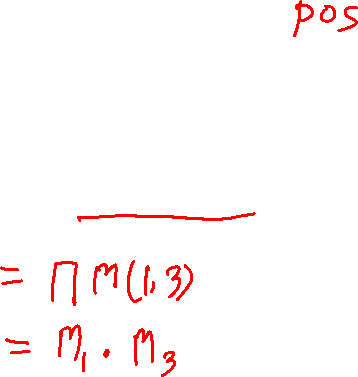 pos
= ∏ M(1,3)
= M₁ · M₃